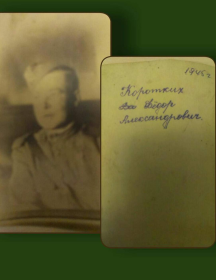 1945г
Коротких
Фёдор
Александрович